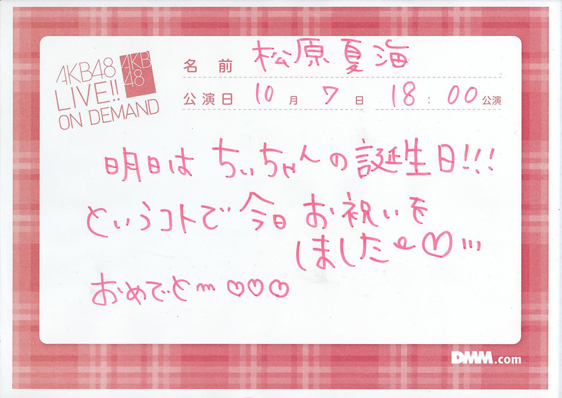 AKB48
LIVE!!
ON DEMAND
AKB
48
名前 松原夏海
公演日 10月7日 18:00公演
明日は ちぃちゃんの誕生日!!!
というコトで 今日 お祝いを
しました♡!!!
おめでと〜♡♡♡
DMM.com